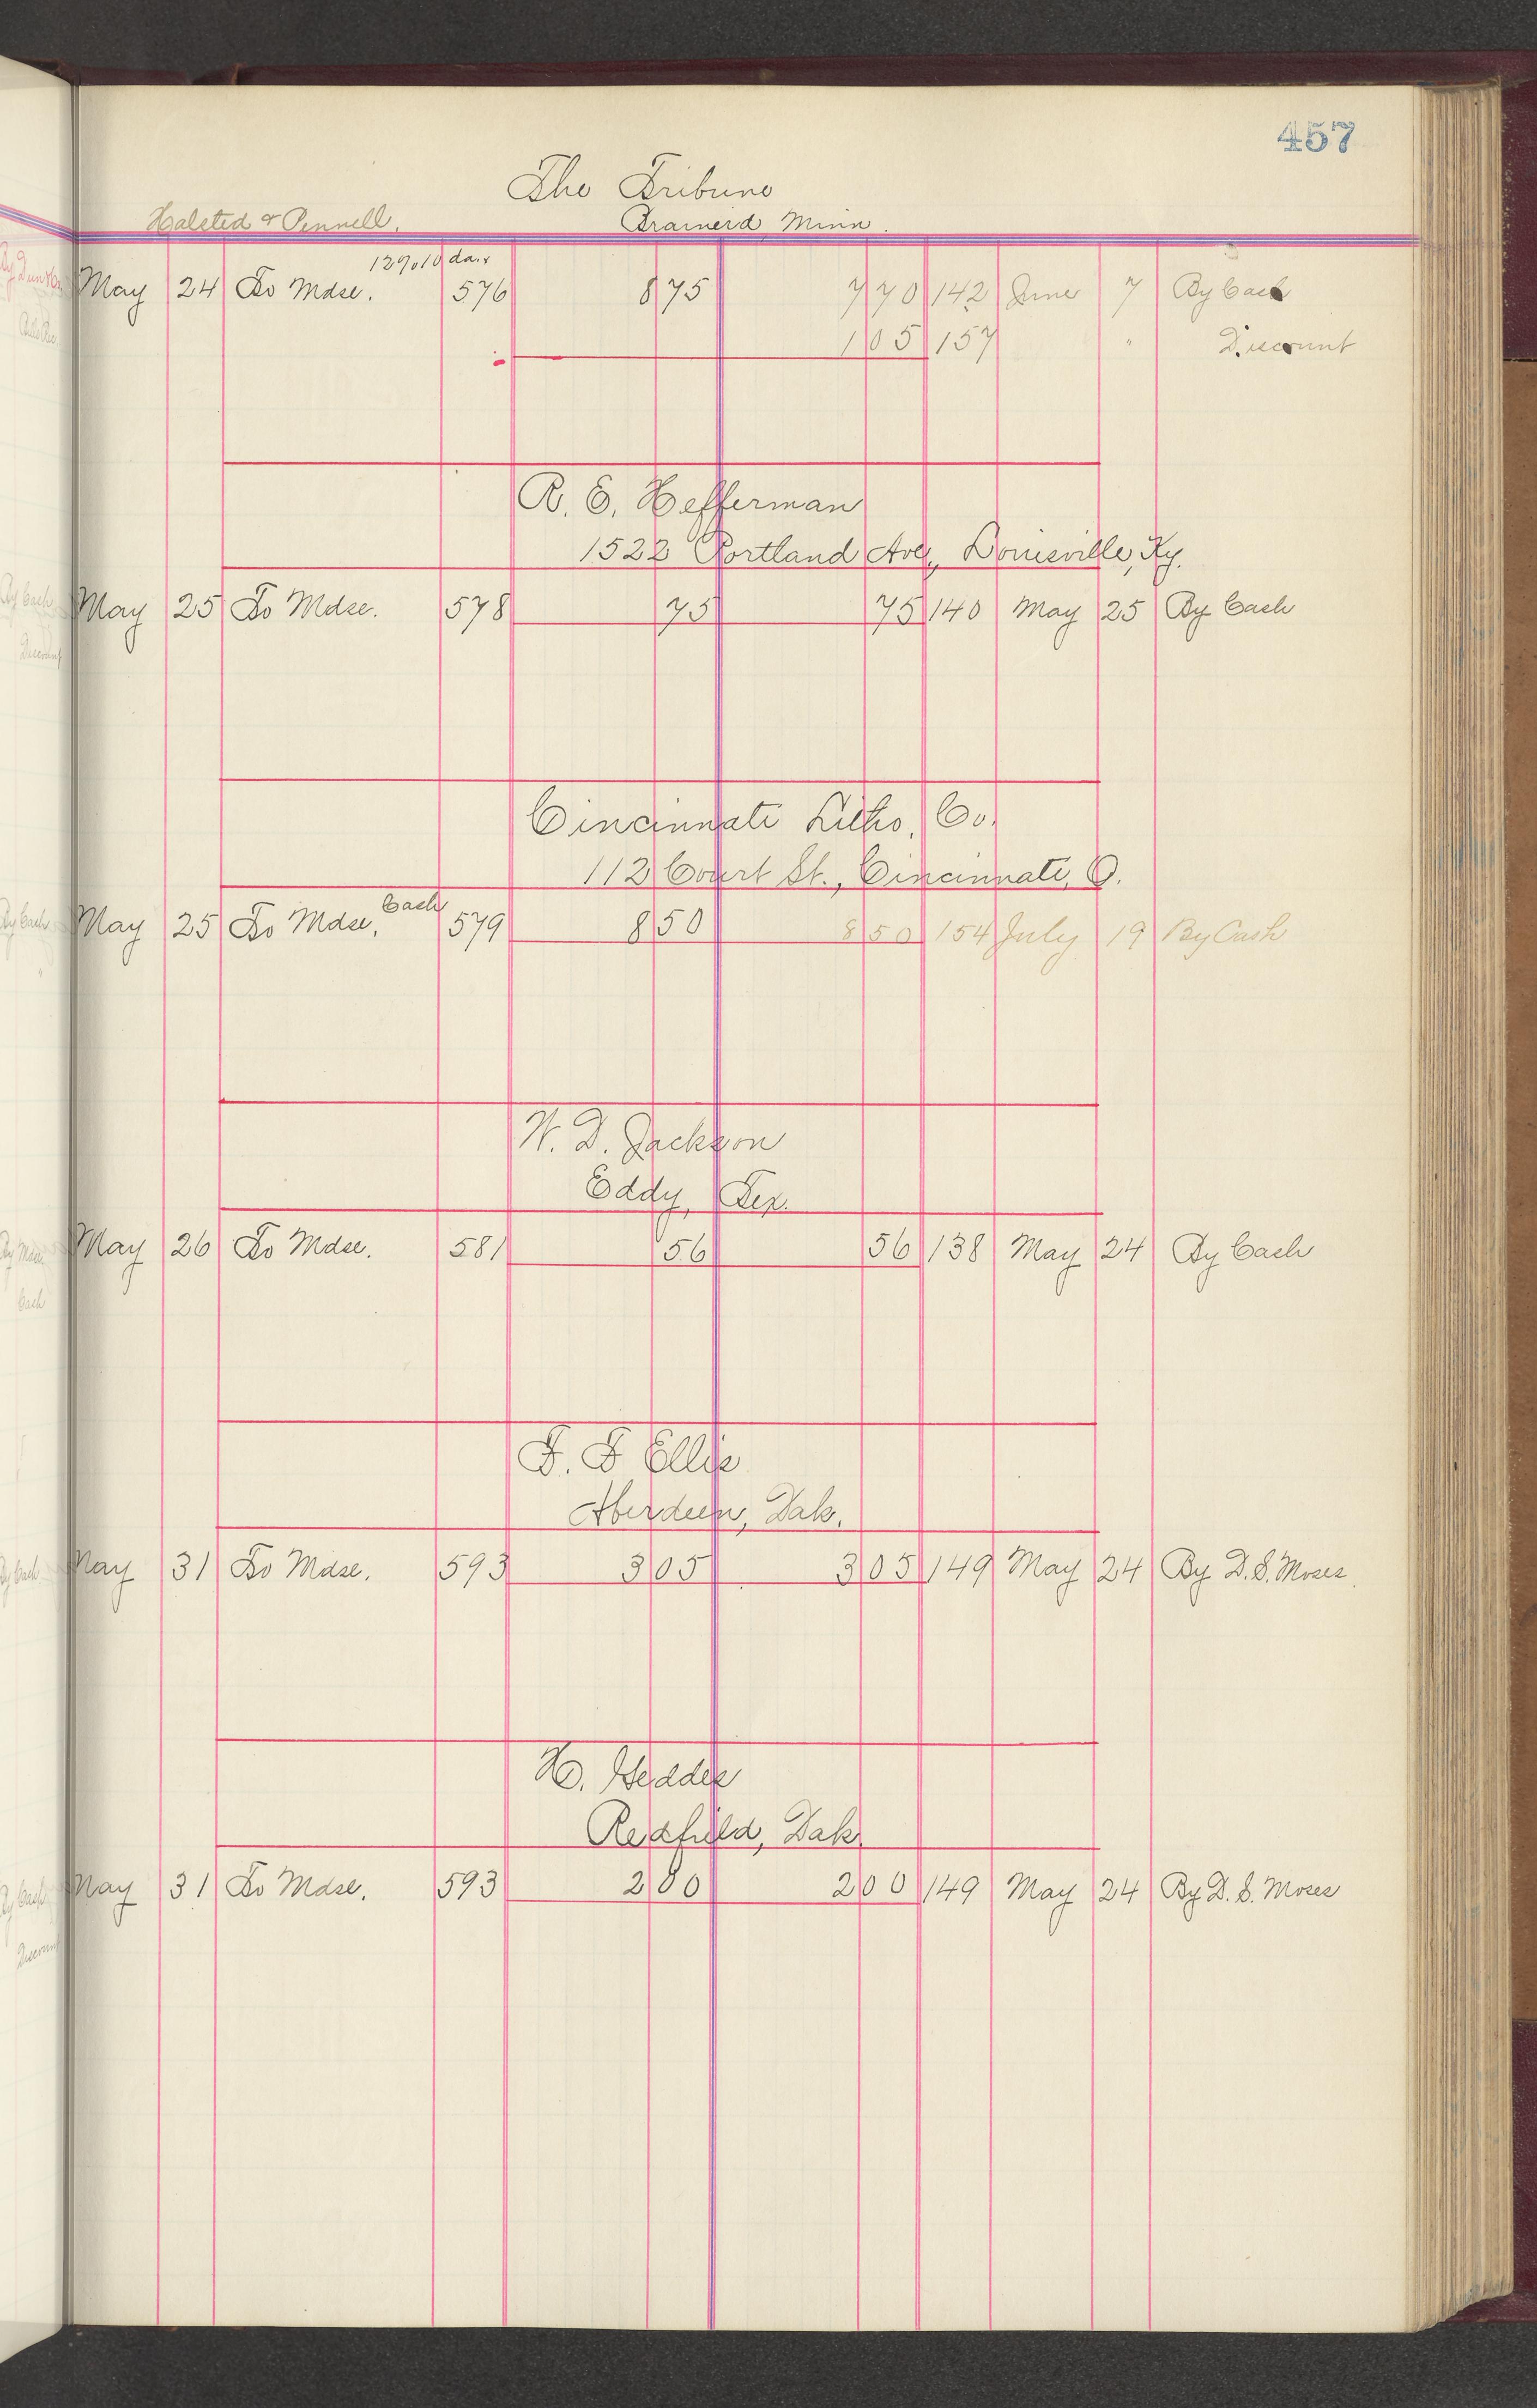 457
The Tribune
Halsted & Pennell. Brainerd, Minn.
12% 10 da.s
May 24 To Mdse. 576 8 75 7 70 142 June 7 By Cash
1 05 157 " Discount
R. E. Hefferman
1522 Portland Ave., Louisville, Ky.
May 25 To Mdse. 578 75 75 140 May 25 By Cash
Cincinnati Litho. Co.
112 Court St., Cincinnati, O.
May 25 To Mdse. Cash 579 8 50 8 50 154 July 19 By Cash
W. D. Jackson
Eddy, Tex.
May 26 To Mdse. 581 56 56 138 May 24 By Cash
F. F Ellis
Aberdeen, Dak.
May 31 To Mdse. 593 3 05 3 05 149 May 24 By D. S. Moses
H. Geddes
Redfield, Dak.
May 31 To Mdse. 593 2 00 2 00 149 May 24 By D. S. Moses